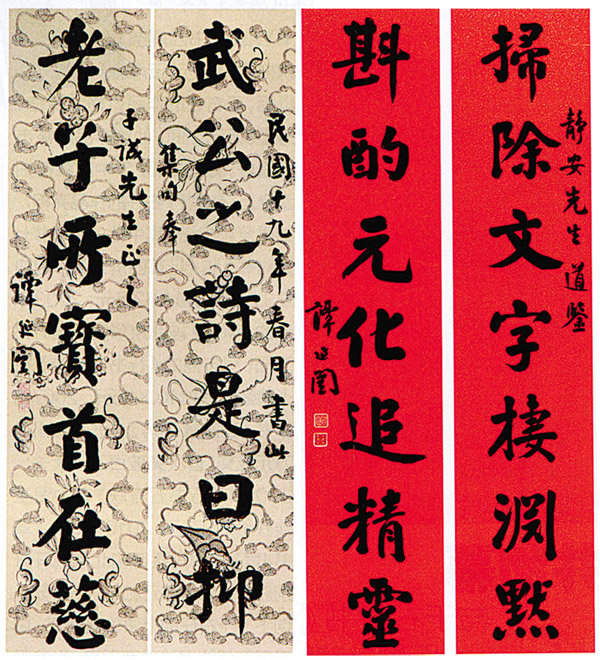 靜安先生道鑒
掃除文字棲淵默
斟酌元化追精靈
譚延闓
民國十九年春月書此
武公之詩是曰抑
集句奉
子誠先生正之
老子所寶首在慈
譚延闓